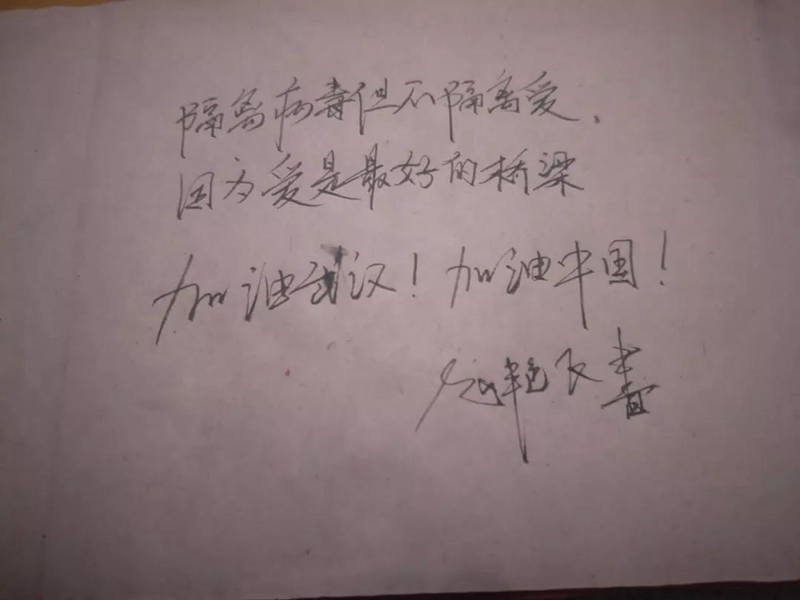 隔离病毒但不隔离爱、
因为爱是最好的桥梁
加油武汉！加油中国！
艳 书